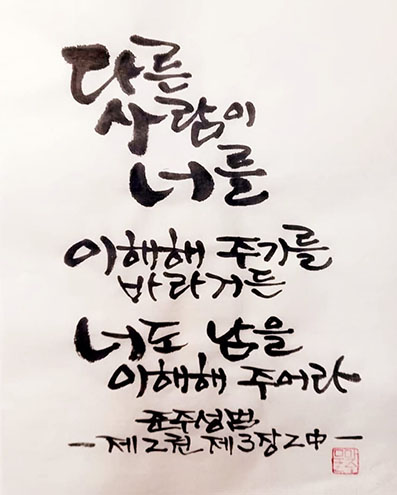 다른
사람이
너를
이해해 주기를
바라거든
너도 남을
이해해 주어라
준주성범
-제2권 제3장 2中-